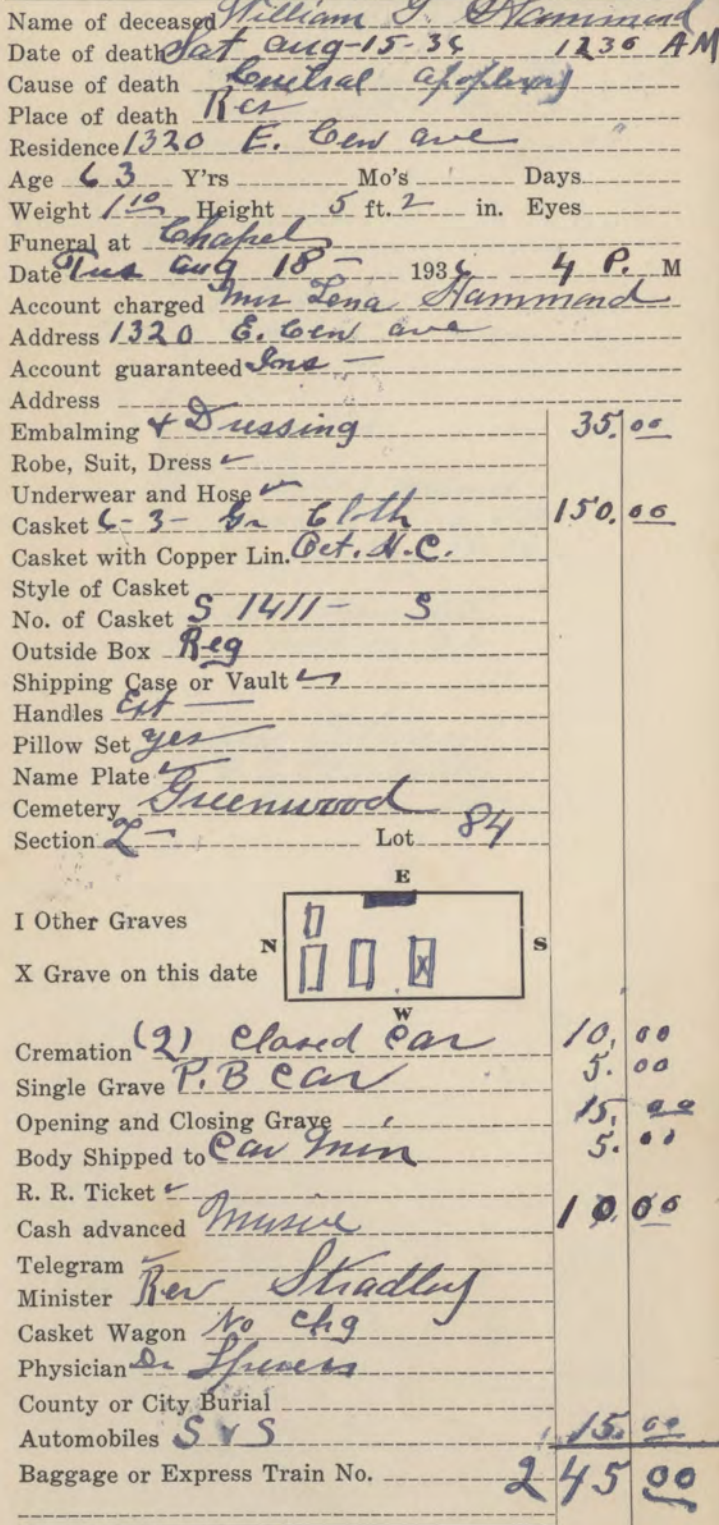 Name of deceased William G. Hammond
Date of death Sat Aug-15-36 1230 AM
Cause of death apoplexy
Place of death Res
Residence 1320 E. Cen ave
Age 63 Y'rs Mo's Days
Weight 110 Height 5 ft. 2 in. Eyes
Funeral at Chapel
Date Tus Aug 18 - 1936 4 P. M
Account charged Mrs Lena Hammond
Address 1320 E. Cen ave
Account guaranteed Ins -
Address
Embalming & Dressing 35.00
Robe, Suit, Dress
Underwear and Hose
Casket 6-3- Gr Cloth 150.00
Casket with Copper Lin. Oct. N.C.
Style of Casket
No. of Casket S 1411- S
Outside Box Reg
Shipping Case or Vault
Handles Ext
Pillow Set yes
Name Plate
Cemetery Greenwood
Section Lot 84
E
I Other Graves
N S
X Grave on this date
X
W
Cremation (2) Closed Car 10.00
Single Grave P.B Car 5.00
Opening and Closing Grave 15.00
Body Shipped to Car Min 5.00
R. R. Ticket
Cash advanced Music 10.00
Telegram
Minister Rev Stradley
Casket Wagon No chg
Physician Dr
County or City Burial
Automobiles S & S 15.00
Baggage or Express Train No. 245 00